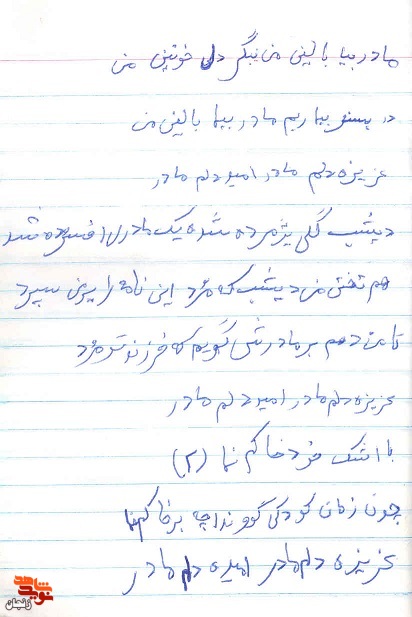 مادر بیا بالین من بنگر دل خونین من
در بستر بیماریم مادر بیا بالین من
عزیزه دلم مادر امید دلم مادر
دیشب گلی پژمرده شده یک مادری افسرده شد
هم تختی من دیشب که مرد این نامه را برمن سپرد
تا من دهم بر مادرش گویم که فرزند تو مرد
عزیزه دلم مادر امید دلم مادر
با اشک خود خاکم نما (۲)
چون زمان کودکی گو برخاکم نما
عزیزه دلم مادر امیده دلم مادر
نوید شاهد